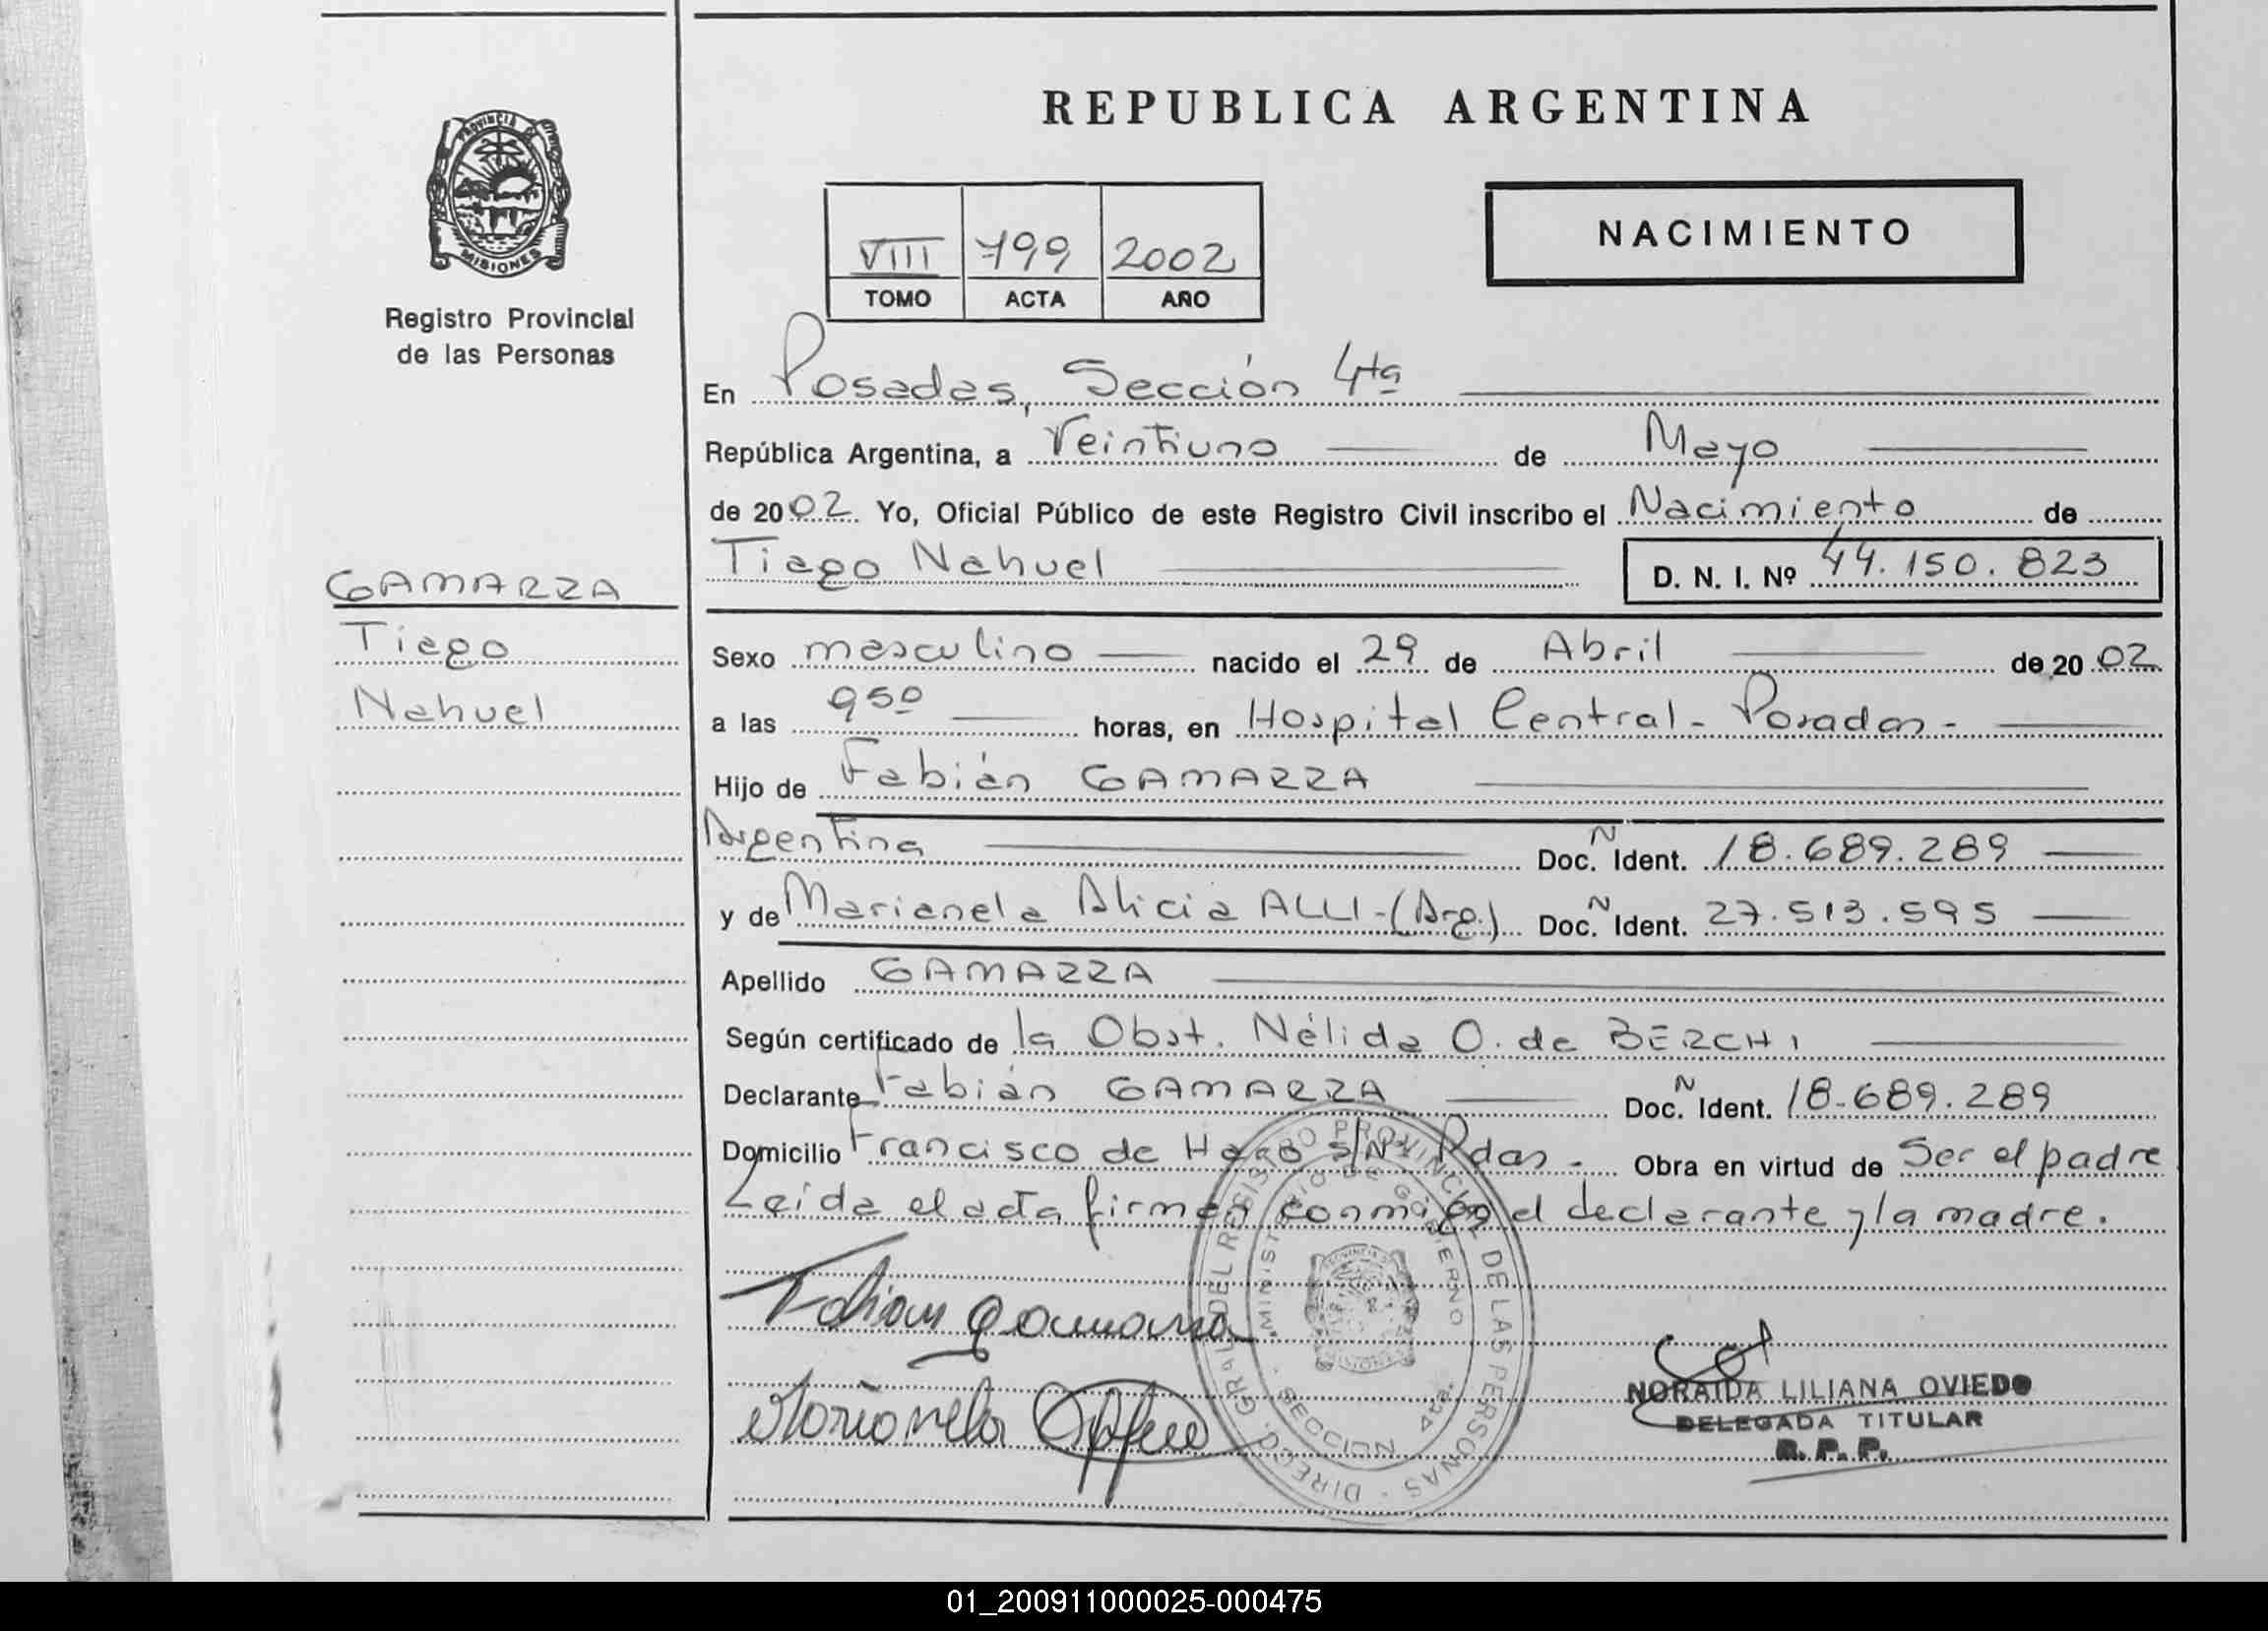 REPUBLICA ARGENTINA
PROVINCIA DE
MISIONES
Registro Provincial
de las Personas
NACIMIENTO
VIII 799 2002
TOMO ACTA AÑO
En Posadas, Sección 4ta
República Argentina, a Veintiuno de Mayo
de 2002 Yo, Oficial Público de este Registro Civil inscribo el Nacimiento de
Tiago Nahuel D. N. I. Nº 44.150.823
GAMARRA
Tiago
Nahuel
Sexo masculino nacido el 29 de Abril de 2002
a las 950 horas, en Hospital Central - Posadas -
Hijo de Fabián GAMARRA
Argentina Doc. Ñ Ident. 18.689.289
y de Marianela Alicia ALLI - (Arg.) Doc. Ñ Ident. 27.513.595
Apellido GAMARRA
Según certificado de la Obst. Nélida O. de BERCHI
Declarante Fabián GAMARRA Doc. Ñ Ident. 18.689.289
Domicilio Francisco de Haro S/Nº Pdas - Obra en virtud de Ser el padre
Leída el acta firman conmigo el declarante y la madre.
Fabian Gamarra
Marianela
DIREC. GRAL. DEL REGISTRO PROVINCIAL DE LAS PERSONAS
MINISTERIO DE GOBIERNO
SECCION 4ta.
NORAIDA LILIANA OVIEDO
DELEGADA TITULAR
R. P. P.
01_200911000025-000475